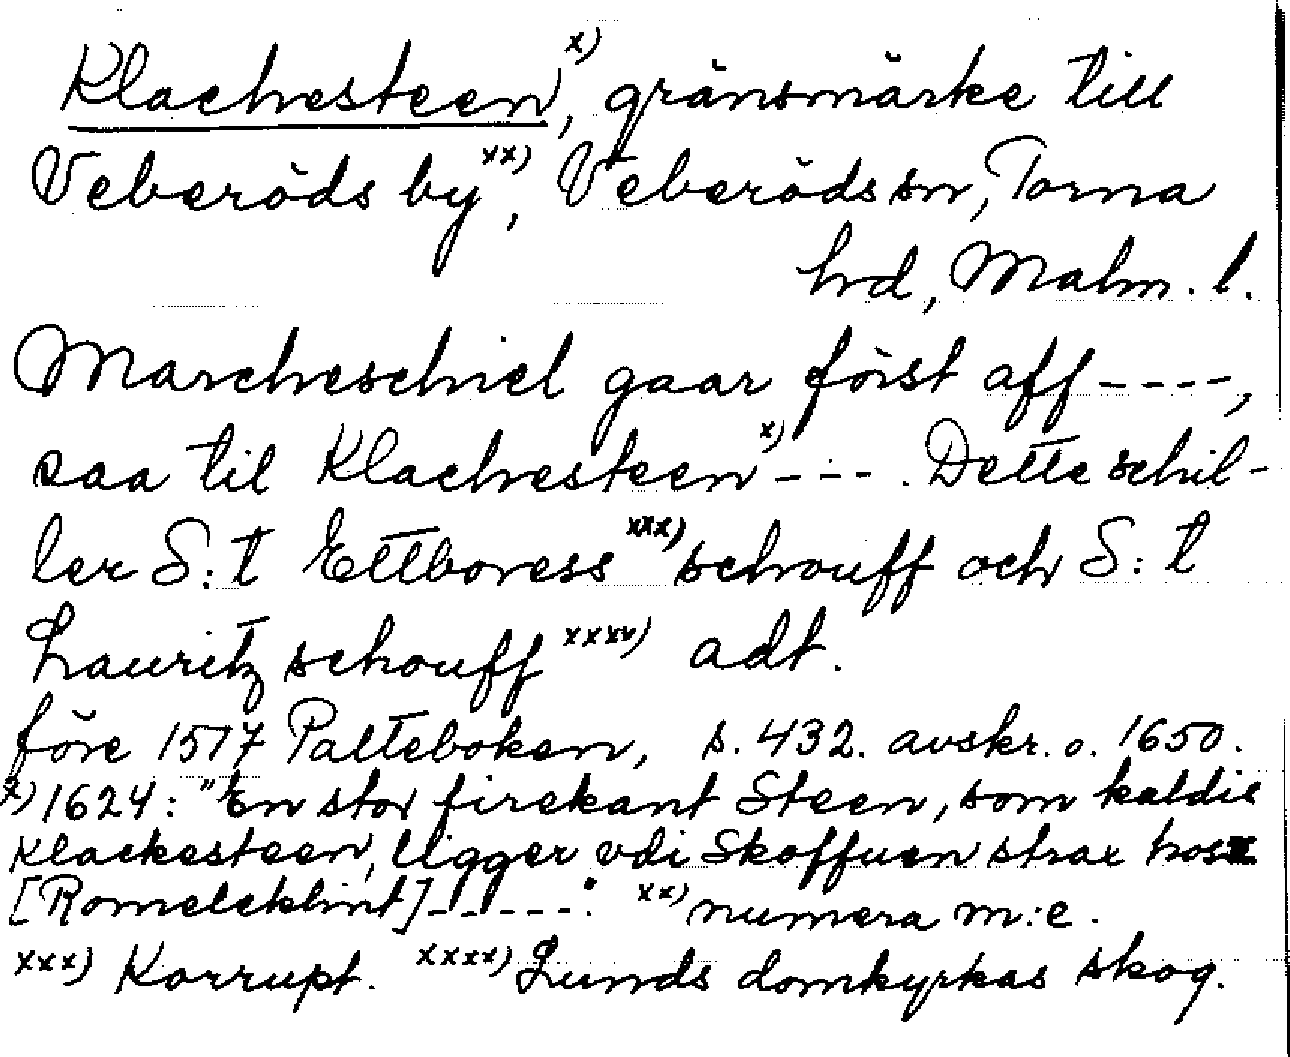 Klachesteen x), gränsmärke till
Veberöds by xx), Veberöds sn, Torna
hd, Malm. l.
Marcheschiel gaar först aff ----,
saa til Klachesteen x) ---. Dette schil-
ler S:t Ettboress xxx) schouff och S:t
Lauritz schouff xxxx) adt.
före 1517 Palteboken, s. 432. avskr. o. 1650.
x) 1624: "En stor firekant Steen, som kaldis
Klackesteen, ligger vdi Skoffuen strax hos
[Romeleklint]-----." xx) numera m:e.
xxx) Korrupt. xxxx) Lunds domkyrkas skog.